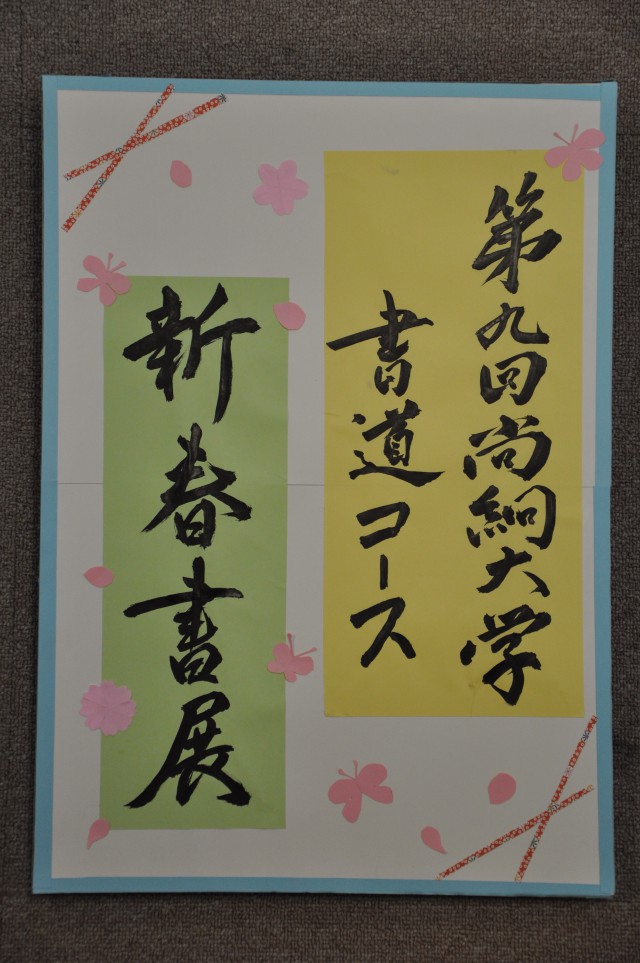 第九回尚絅大学
書道コース
新春書展